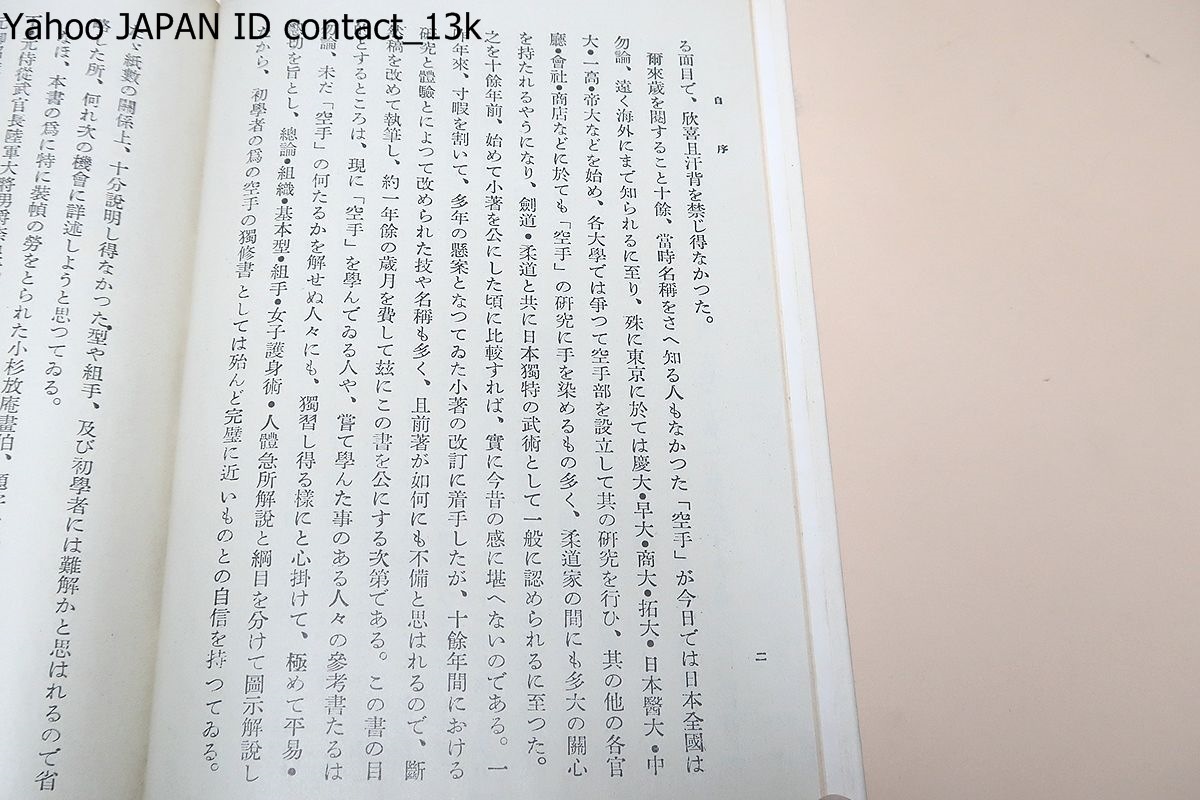 Yahoo JAPAN ID contact_13k
自序
二
る面目て、欣喜且汗背を禁じ得なかつた。
爾來歳を閲すること十餘、當時名稱をさへ知る人もなかつた「空手」が今日では日本全國は
勿論、遠く海外にまで知られるに至り、殊に東京に於ては慶大・早大・商大・拓大・日本醫大・中
大・一高・帝大などを始め、各大學では爭つて空手部を設立して其の研究を行ひ、其の他の各官
廳・會社・商店などに於ても「空手」の研究に手を染めるもの多く、柔道家の間にも多大の關心
を持たれるやうになり、劍道・柔道と共に日本獨特の武術として一般に認められるに至つた。
之を十餘年前、始めて小著を公にした頃に比較すれば、實に今昔の感に堪へないのである。一
年來、寸暇を割いて、多年の懸案となつてゐた小著の改訂に着手したが、十餘年間における
研究と體驗とによつて改められた技や名稱も多く、且前著が如何にも不備と思はれるので、斷
稿を改めて執筆し、約一年餘の歳月を費して玆にこの書を公にする次第である。この書の目
とするところは、現に「空手」を學んでゐる人や、嘗て學んた事のある人々の參考書たるは
勿論、未だ「空手」の何たるかを解せぬ人々にも、獨習し得る樣にと心掛けて、極めて平易・
切を旨とし、總論・組織・基本型・組手・女子護身術・人體急所解説と綱目を分けて圖示解説し
から、初學者の爲の空手の獨修書としては殆んど完璧に近いものとの自信を持つてゐる。
紙數の關係上、十分説明し得なかつた型や組手、及び初學者には難解かと思はれるので省
略した所、何れ次の機會に詳述しようと思つてゐる。
ほ、本書の爲に特に裝幀の勞をとられた小杉放庵畫伯、
元侍從武官長陸軍大將男爵奈良